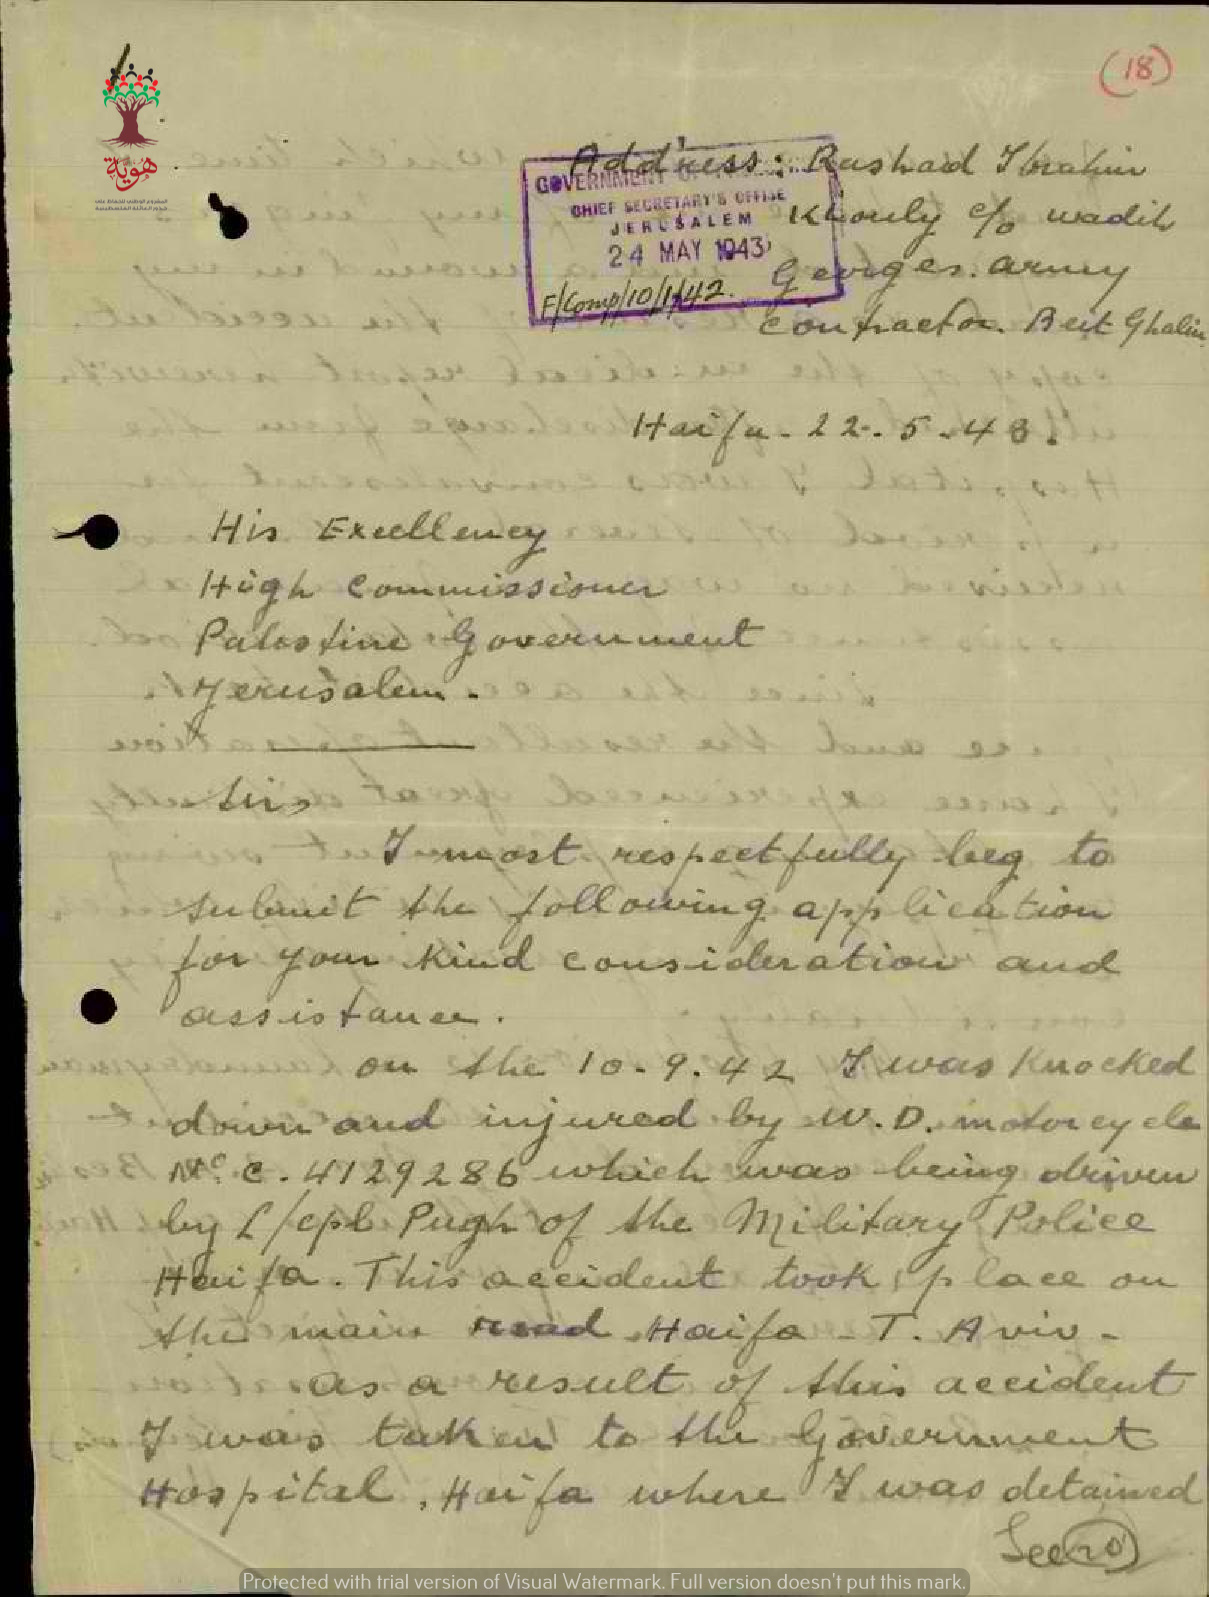 (18)
Address: Rashad Ibrahim
Khouly c/o wadih
Georges. army
contractor. Beit Ghalim
GOVERNMENT OF
CHIEF SECRETARY'S OFFICE
JERUSALEM
24 MAY 1943
F/Comp/10/1/42.
هوية
Haifa. 22. 5. 43.
His Excellency
High Commissioner
Palestine Government
Jerusalem.
Sir,
I most respectfully beg to
submit the following application
for your kind consideration and
assistance.
on the 10. 9. 42 I was knocked
down and injured by W. D. motorcycle
No. C. 4129286 which was being driven
by L/cpl Pugh of the Military Police
Haifa. This accident took place on
the main road Haifa - T. Aviv -
as a result of this accident
I was taken to the Government
Hospital, Haifa where I was detained
See 20
Protected with trial version of Visual Watermark. Full version doesn't put this mark.